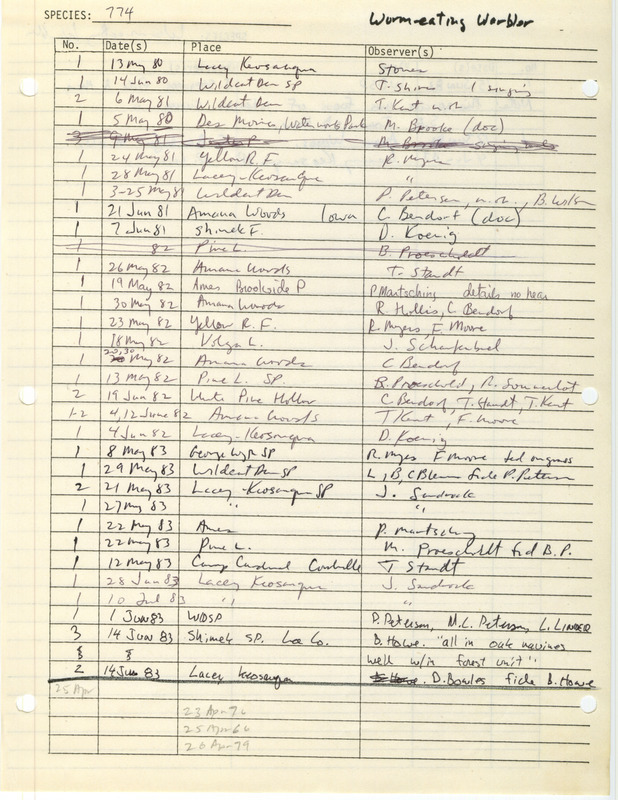 SPECIES: 774 Worm-eating Warbler
No. Date(s) Place Observer(s)
1 13 May 80 Lacey Keosauqua Stoner
1 14 Jun 80 Wildcat Den SP T. Shires 1 singing
2 6 May 81 Wildcat Den T. Kent
1 5 May 80 Des Moines, Waterworks Park M. Brooke (doc)
3 9 May 81
1 24 May 81 Yellow R. F. R. Myers
1 28 May 81 Lacey-Keosauqua "
1 3-25 May 81 Wildcat Den P. Petersen, B. Wilson
1 21 Jun 81 Amana Woods Iowa C. Bendorf (doc)
1 7 Jun 81 Shimek F. D. Koenig
1 82 Pine L. B. Proescholdt
1 26 May 82 Amana Woods T. Standt
1 19 May 82 Ames Brookside P P Martsching details no hear
1 30 May 82 Amana Woods R Hollis, C. Bendorf
1 23 May 82 Yellow R. F. R. Myers F. Moore
1 18 May 82 Volga L. J. Schaufenbuel
1 20,30 May 82 Amana Woods C Bendorf
1 13 May 82 Pine L. SP. B. Proescholdt,
2 19 Jun 82 White Pine Hollow C Bendorf, T. Standt, T. Kent
1-2 4,12 June 82 Amana Woods T Kent, F. Moore
1 4 Jun 82 Lacey-Keosauqua D. Koenig
1 8 May 83 George Wyth SP R. Myers F Moore
1 29 May 83 Wildcat Den SP L, B, C Blevins fide P. Petersen
2 21 May 83 Lacey-Keosauqua SP J. Sandrock
1 27 May 83 " "
1 22 May 83 Ames P. Martsching
1 22 May 83 Pine L. M. Proescholdt fid B. P.
1 12 May 83 Camp Cardinal Coralville T Standt
1 28 Jun 83 Lacey Keosauqua J. Sandrock
1 10 Jul 83 " "
1 1 Jun 83 WDSP P. Peterson, M.C. Peterson, L. LINDER
3 14 Jun 83 Shimek SP. Lee Co. B. Howe. "all in oak ravines
well w/in forest unit"
2 14 Jun 83 Lacey Keosauqua D. Bowles fide B. Howe
25 Apr
23 Apr 76
25 Apr 66
26 Apr 79